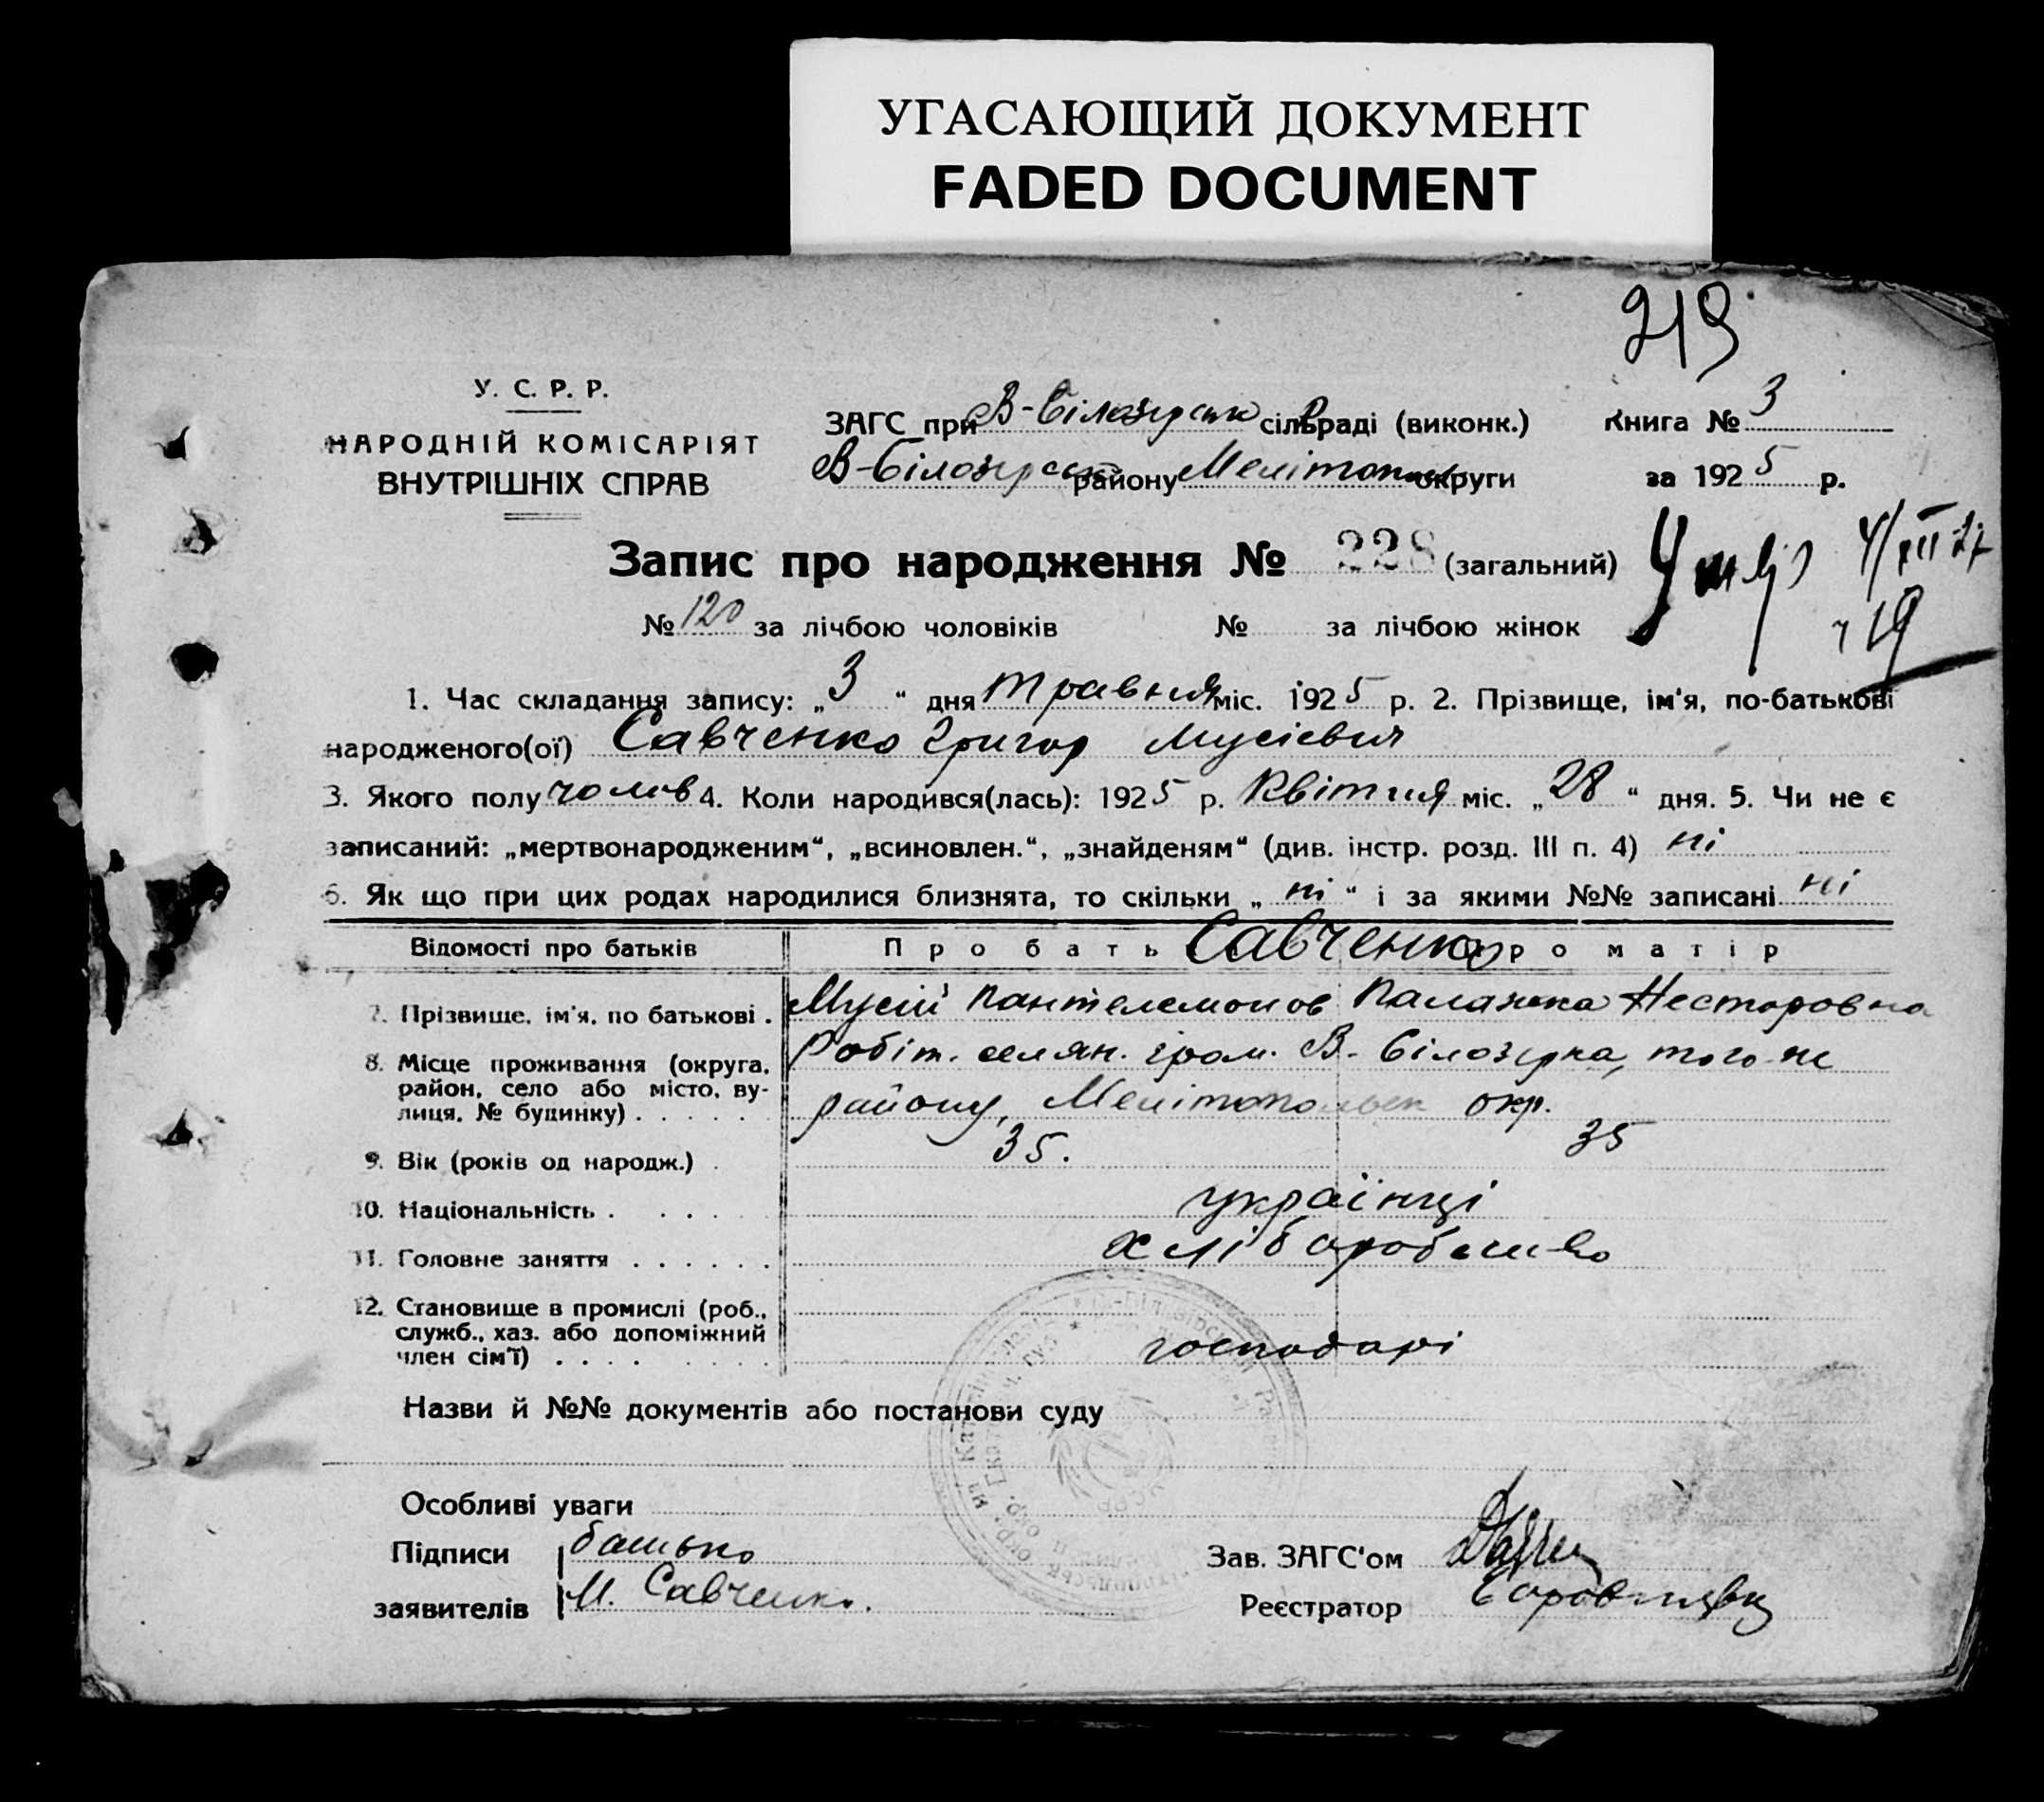 УГАСАЮЩИЙ ДОКУМЕНТ
FADED DOCUMENT
219
У. С. Р. Р.
НАРОДНІЙ КОМІСАРІЯТ
ВНУТРІШНІХ СПРАВ
ЗАГС при В-Білозерськ сільраді (виконк.)
Книга № 3
В-Білозерськ району Мелітопольськ округи
за 1925 р.
Запис про народження № 228 (загальний)
№ 120 за лічбою чоловіків № за лічбою жінок
4/XII 27
19
1. Час складання запису: „3“ дня травня міс. 1925 р. 2. Прізвище, ім'я, по-батькові
народженого(ої) Савченко Григор Мусієвич
3. Якого полу чолов 4. Коли народився(лась): 1925 р. Квітня міс. „28“ дня. 5. Чи не є
записаний: „мертвонародженим“, „всиновлен.“, „знайденям“ (див. інстр. розд. III п. 4) ні
6. Як що при цих родах народилися близнята, то скільки „ні“ і за якими №№ записані ні
Відомості про батьків Про бать Савченко ро матір
7. Прізвище, ім'я, по батькові . Мусій Пантелемонов Палажка Несторовна
8. Місце проживання (округа, район, село або місто, вулиця, № будинку) . . . . . Робіт. селян. гром. В-Білозерка, того-ж
району, Мелітопольськ окр.
9. Вік (років од народж.) . 35. 35
10. Національність . . . . українці
11. Головне заняття . . . . . . хліборобство
12. Становище в промислі (роб., служб., хаз. або допоміжний член сім'ї) . . . . господарі
Назви й №№ документів або постанови суду
Особливі уваги
Підписи батько
заявителів М. Савченко.
Зав. ЗАГС'ом
Реєстратор